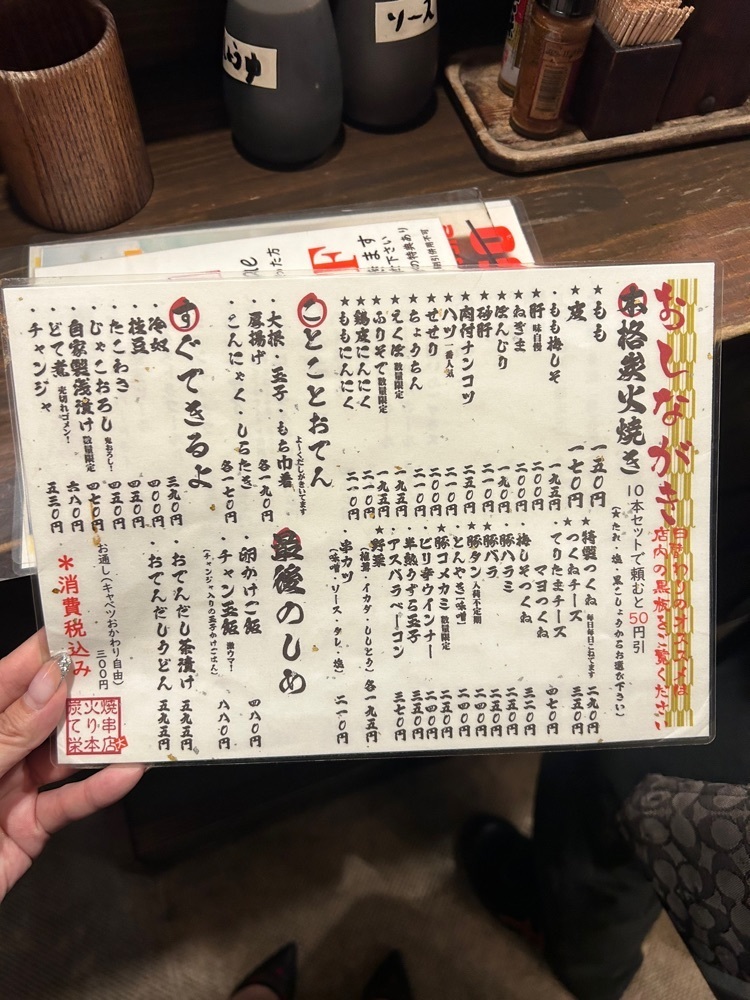 しょうゆ
ソース
おしながき
日替わりのオススメは
店内の黒板をご覧ください
本格炭火焼き
10本セットで頼むと50円引
(★たれ・塩・黒こしょうからお選び下さい)
★もも 一五〇円
★皮 一七〇円
・もも梅しそ 一九五円
★肝 味自慢 二〇〇円
★ねぎま 二〇〇円
★ぼんじり 一九〇円
★砂肝 二一〇円
★肉付ナンコツ 二五〇円
★ハツ 一番人気 二一〇円
★せせり 二一〇円
★ちょうちん 二一〇円
★えくぼ 数量限定 一九五円
★ふりそで 数量限定 一九五円
★鶏皮にんにく 二一〇円
★ももにんにく 二一〇円
★特製つくね 毎日毎日こねてます 二九〇円
★つくねチーズ 三五〇円
・てりたまチーズ
マヨつくね 四七〇円
・梅しそつくね 三二〇円
★豚ハラミ 二五〇円
★豚バラ 二五〇円
★豚タン 入荷不定期 二一〇円
・とんやき(味噌) 二〇〇円
★豚コメカミ 数量限定 二四〇円
・ピリ辛ウインナー 二四〇円
・半熟うずら玉子 三五〇円
・アスパラベーコン 三七〇円
★野菜 各一九五円
(椎茸・イカダ・ししとう)
・串カツ 二一〇円
(味噌・ソース・タレ・塩)
ことことおでん
よーくだしがきいてます
・大根・玉子・もち巾着 各一九〇円
・厚揚げ
・こんにゃく・しらたき 各一七〇円
すぐできるよ
・冷奴 三九〇円
・枝豆 四〇〇円
・たこわさ 四五〇円
・じゃこおろし 鬼おろし! 四五〇円
・自家製浅漬け 数量限定 四七〇円
・どて煮 売切れゴメン! 六八〇円
・チャンジャ 五三〇円
最後のしめ
・卵かけご飯 四八〇円
・チャン玉飯 激ウマ! 八八〇円
(チャンジャ入りの玉子かけごはん)
・おでんだし茶漬け 五九五円
・おでんだしうどん 五九五円
お通し(キャベツおかわり自由)
三〇〇円
*消費税込み
焼串店
火り本
炭て栄